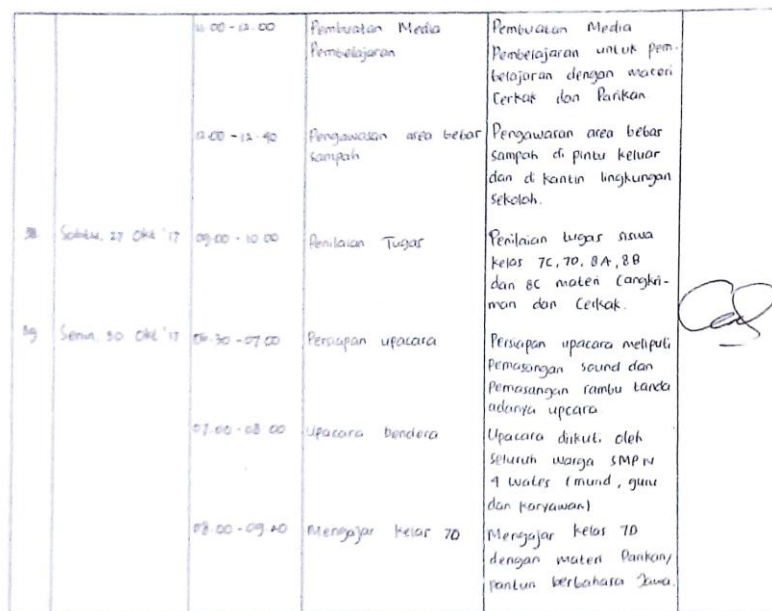 11.00 - 12.00 Pembuatan Media Pembuatan Media
Pembelajaran Pembelajaran untuk pem-
belajaran dengan materi
Cerkak dan Parikan
12.00 - 12.40 Pengawasan area bebar Pengawasan area bebar
sampah sampah di pintu keluar
dan di kantin lingkungan
sekolah.
38 Sabtu, 27 Okt '17 09.00 - 10.00 Penilaian Tugas Penilaian tugas siswa
kelas 7C, 7D, 8A, 8B
dan 8C materi Cangkri-
man dan Cerkak.
39 Senin, 30 Okt '17 06.30 - 07.00 Persiapan upacara Persiapan upacara meliputi
Pemasangan sound dan
Pemasangan rambu tanda
adanya upcara
07.00 - 08.00 Upacara bendera Upacara diikuti oleh
seluruh warga SMP N
4 Wates (murid, guru
dan karyawan)
08.00 - 09.20 Mengajar kelas 7D Mengajar kelas 7D
dengan materi Parikan/
pantun berbahasa Jawa.